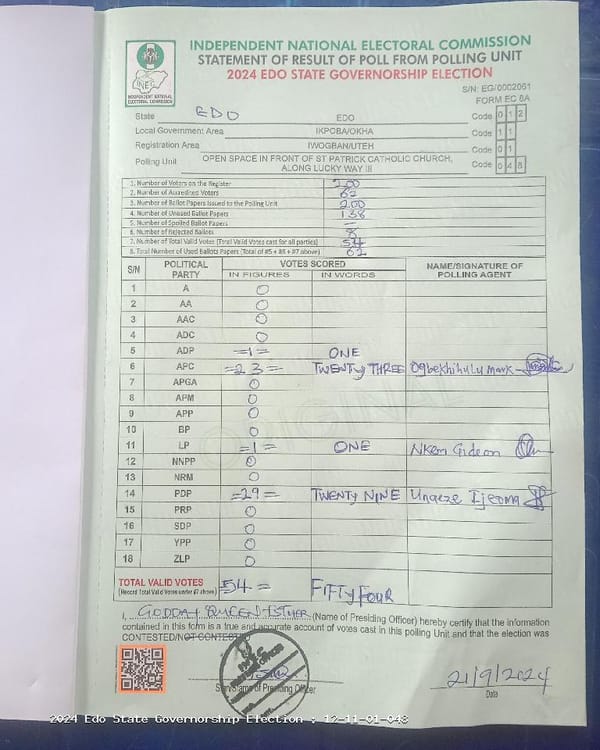 INDEPENDENT NATIONAL ELECTORAL COMMISSION
STATEMENT OF RESULT OF POLL FROM POLLING UNIT
2024 EDO STATE GOVERNORSHIP ELECTION
INEC
INDEPENDENT NATIONAL ELECTORAL COMMISSION
S/N: EG/0002061
FORM EC 8A
State EDO EDO Code 0 1 2
Local Government Area IKPOBA/OKHA Code 1 1
Registration Area IWOGBAN/UTEH Code 0 1
Polling Unit OPEN SPACE IN FRONT OF ST PATRICK CATHOLIC CHURCH, ALONG LUCKY WAY III Code 0 4 8
1. Number of Voters on the Register 200
2. Number of Accredited Voters 62
3. Number of Ballot Papers Issued to the Polling Unit 200
4. Number of Unused Ballot Papers 138
5. Number of Spoiled Ballot Papers —
6. Number of Rejected Ballots 8
7. Number of Total Valid Votes (Total Valid Votes cast for all parties) 54
8. Total Number of Used Ballots Papers (Total of #5 + #6 + #7 above) 62
S/N POLITICAL PARTY VOTES SCORED NAME/SIGNATURE OF POLLING AGENT
IN FIGURES IN WORDS
1 A 0
2 AA 0
3 AAC 0
4 ADC 0
5 ADP =1= ONE
6 APC =23= TWENTY THREE mark
7 APGA 0
8 APM 0
9 APP 0
10 BP 0
11 LP =1= ONE Nkem Gideon
12 NNPP 0
13 NRM 0
14 PDP =29= TWENTY NINE Ijeoma
15 PRP 0
16 SDP 0
17 YPP 0
18 ZLP 0
TOTAL VALID VOTES =54= FIFTY FOUR
(Record Total Valid Votes under #7 above)
I, GODDAY QUEEN ESTHER (Name of Presiding Officer) hereby certify that the information
contained in this form is a true and accurate account of votes cast in this polling Unit and that the election was
CONTESTED/NOT CONTESTED
Sign/Stamp of Presiding Officer
21/9/2024
Date
2024 Edo State Governorship Election : 12-11-01-048